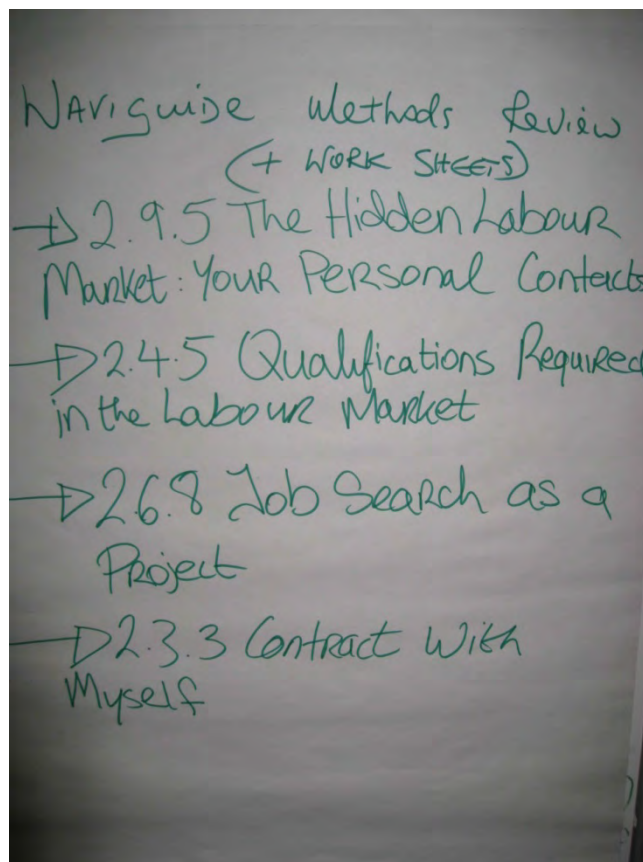 NAViGUiDE Methods Review
(+ WORK SHEETS)
2.9.5 The Hidden Labour
Market: Your Personal Contacts
2.4.5 Qualifications Required
in the Labour Market
2.6.8 Job Search as a
Project
2.3.3 Contract With
Myself